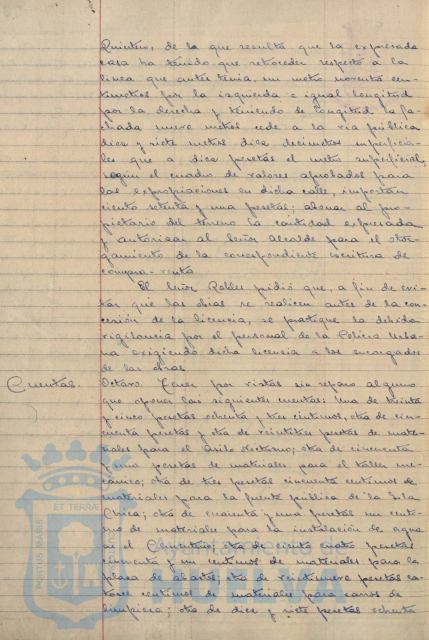 Quintero, de la que resulta que la expresada
casa ha tenido que retroceder respecto a la
linea que antes tenia, un metro noventa cen-
timetros por la izquierda e igual longitud
por la derecha y teniendo de longitud la fa-
chada nueve metros cede a la via pública
diez y siete metros diez decimetros superficia-
les que a diez pesetas el metro superficial,
según el cuadro de valores aprobados para
las expropiaciones en dicha calle, importan
ciento setenta y una pesetas; abonar al pro-
pietario del terreno la cantidad expresada
y autorizar al Señor Alcalde para el otor-
gamiento de la correspondiente escritura de
compra-venta.
El Señor Robles pidió que, a fin de evi-
tar que las obras se realicen antes de la con-
cesión de la licencia, se practique la debida
vigilancia por el personal de la Policia Urba-
na exigiendo dicha licencia a los encargados
de las obras
Cuentas.
Octavo. Tener por vistas sin reparo alguno
que oponer las siguientes cuentas: Una de treinta
y cinco pesetas ochenta y tres centimos, otra de cin-
cuenta pesetas y otra de veintitres pesetas de mate-
riales para el Asilo Nocturno; otra de cincuenta
y una pesetas de materiales para el taller me-
canico; otra de tres pesetas cincuenta centimos de
materiales para la fuente pública de la Isla
Chica; otra de cuarenta y una pesetas un centi-
mo de materiales para la instalación de agua
en el Cementerio; otra de ciento cuatro pesetas
cincuenta y un centimos de materiales para la
plaza de abastos; otra de veintinueve pesetas ca-
torce centimos de materiales para carros de
limpieza; otra de diez y siete pesetas ochenta
PORTUS MARIS
ET TERRAE
Ayuntamiento de
HUELVA